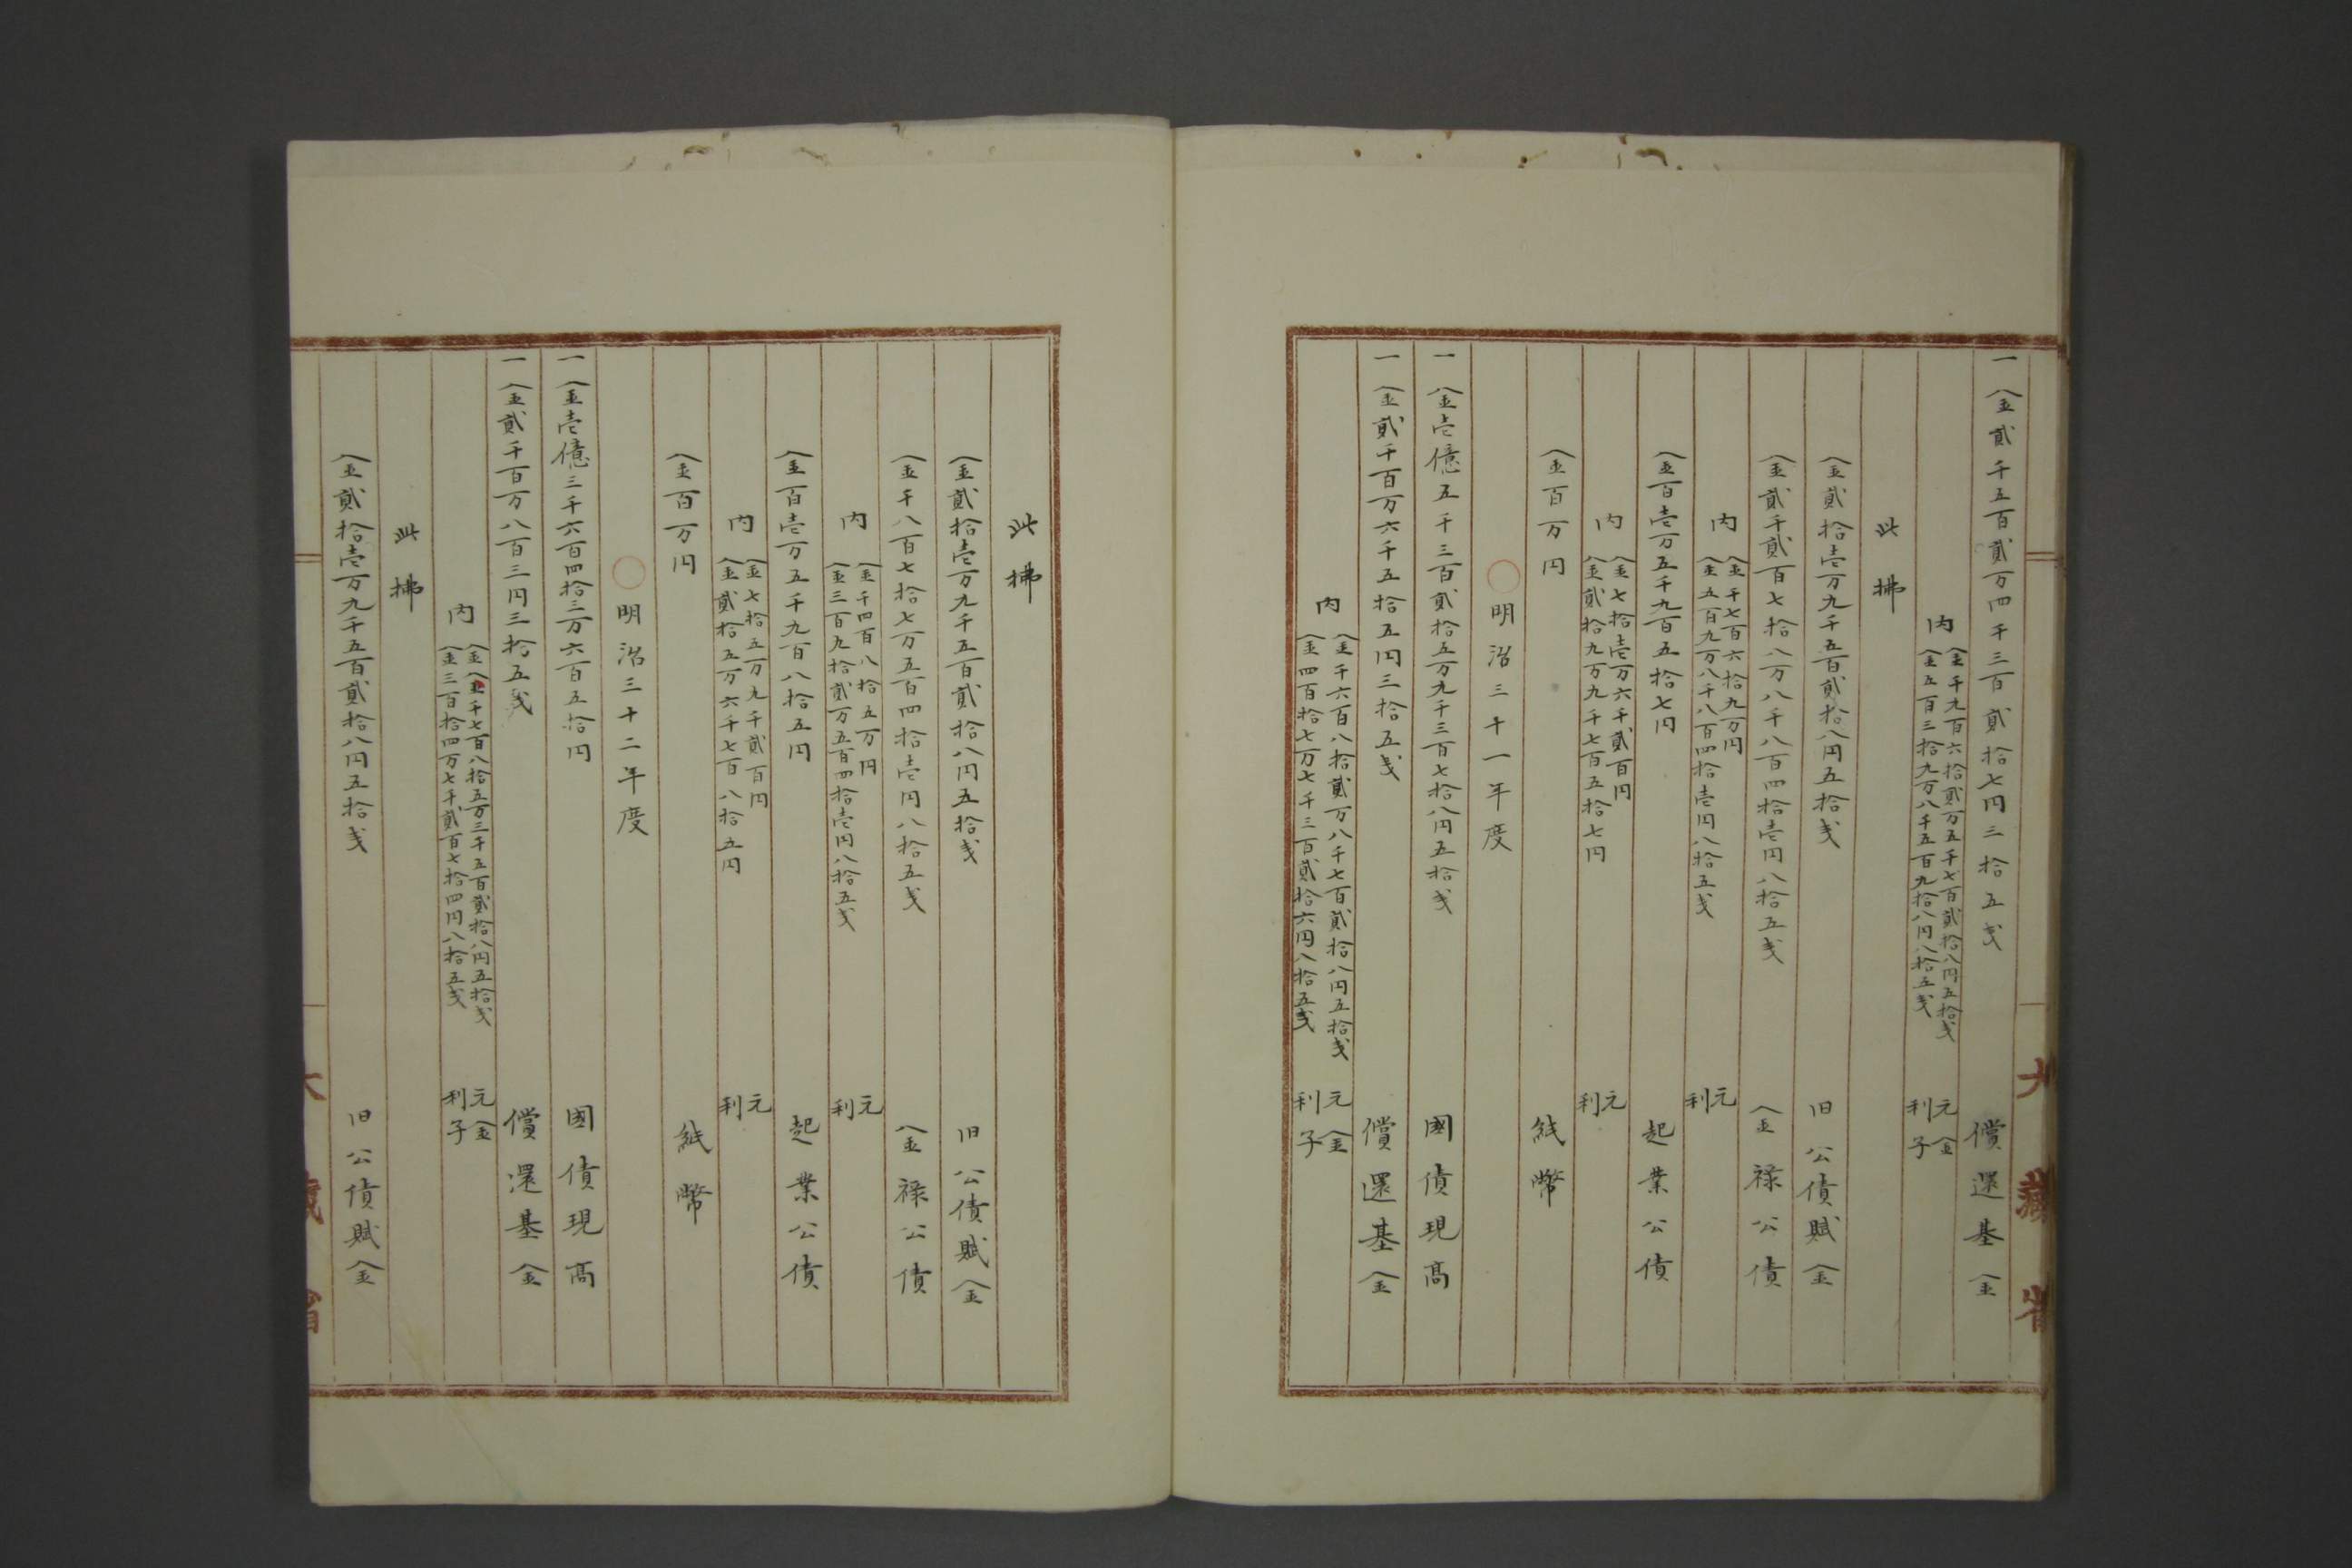 大藏省
一 金貳千五百貳万四千三百貳拾七円三拾五戋 償還基金
内 金千九百六拾貳万五千七百貳拾八円五拾戋 元金
金五百三拾九万八千五百九拾八円八拾五戋 利子
此拂
金貳拾壱万九千五百貳拾八円五拾戋 旧公債賦金
金貳千貳百七拾八万八千八百四拾壱円八拾五戋 金禄公債
内 金千七百六拾九万円 元
金五百九万八千八百四拾壱円八拾五戋 利
金百壱万五千九百五拾七円 起業公債
内 金七拾壱万六千貳百円 元
金貳拾九万九千七百五拾七円 利
金百万円 紙幣
○明治三十一年度
一 金壱億五千三百貳拾五万九千三百七拾八円五拾戋 國債現高
一 金貳千百万六千五拾五円三拾五戋 償還基金
内 金千六百八拾貳万八千七百貳拾八円五拾戋 元金
金四百拾七万七千三百貳拾六円八拾五戋 利子
此拂
金貳拾壱万九千五百貳拾八円五拾戋 旧公債賦金
金千八百七拾七万五百四拾壱円八拾五戋 金禄公債
内 金千四百八拾五万円 元
金三百九拾貳万五百四拾壱円八拾五戋 利
金百壱万五千九百八拾五円 起業公債
内 金七拾五万九千貳百円 元
金貳拾五万六千七百八拾五円 利
金百万円 紙幣
○明治三十二年度
一 金壱億三千六百四拾三万六百五拾円 國債現高
一 金貳千百万八百三円三拾五戋 償還基金
内 金千七百八拾五万三千五百貳拾八円五拾戋 元金
金三百拾四万七千貳百七拾四円八拾五戋 利子
此拂
金貳拾壱万九千五百貳拾八円五拾戋 旧公債賦金
大藏省